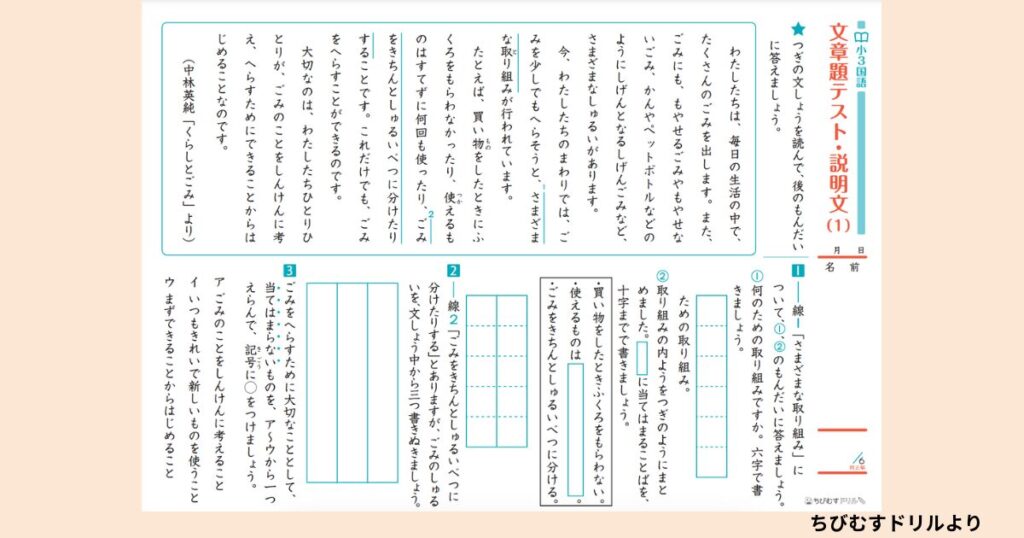 小3国語
文章題テスト・説明文(1)
月 日
名前
/6
ちびむすドリル
★つぎの文しょうを読んで、後のもんだい
に答えましょう。
わたしたちは、毎日の生活の中で、
たくさんのごみを出します。また、
ごみにも、もやせるごみやもやせな
いごみ、かんやペットボトルなどの
ようにしげんとなるしげんごみなど、
さまざまなしゅるいがあります。
今、わたしたちのまわりでは、ご
みを少しでもへらそうと、1さまざま
な取り組みが行われています。
たとえば、買い物をしたときにふ
くろをもらわなかったり、使えるも
のはすてずに何回も使ったり、2ごみ
をきちんとしゅるいべつに分けたり
することです。これだけでも、ごみ
をへらすことができるのです。
大切なのは、わたしたちひとりひ
とりが、ごみのことをしんけんに考
え、へらすためにできることからは
じめることなのです。
(中林英純「くらしとごみ」より)
1 ――線1「さまざまな取り組み」に
ついて、①、②のもんだいに答えましょう。
①何のための取り組みですか。六字で書
きましょう。
ための取り組み。
②取り組みの内ようをつぎのようにまと
めました。□に当てはまることばを、
十字までで書きましょう。
・買い物をしたときふくろをもらわない。
・使えるものは□。
・ごみをきちんとしゅるいべつに分ける。
2 ――線2「ごみをきちんとしゅるいべつに
分けたりする」とありますが、ごみのしゅる
いを、文しょう中から三つ書きぬきましょう。
3 ごみをへらすために大切なこととして、
当てはまらないものを、ア〜ウから一つ
えらんで、記号に○をつけましょう。
ア ごみのことをしんけんに考えること
イ いつもきれいで新しいものを使うこと
ウ まずできることからはじめること
ちびむすドリルより